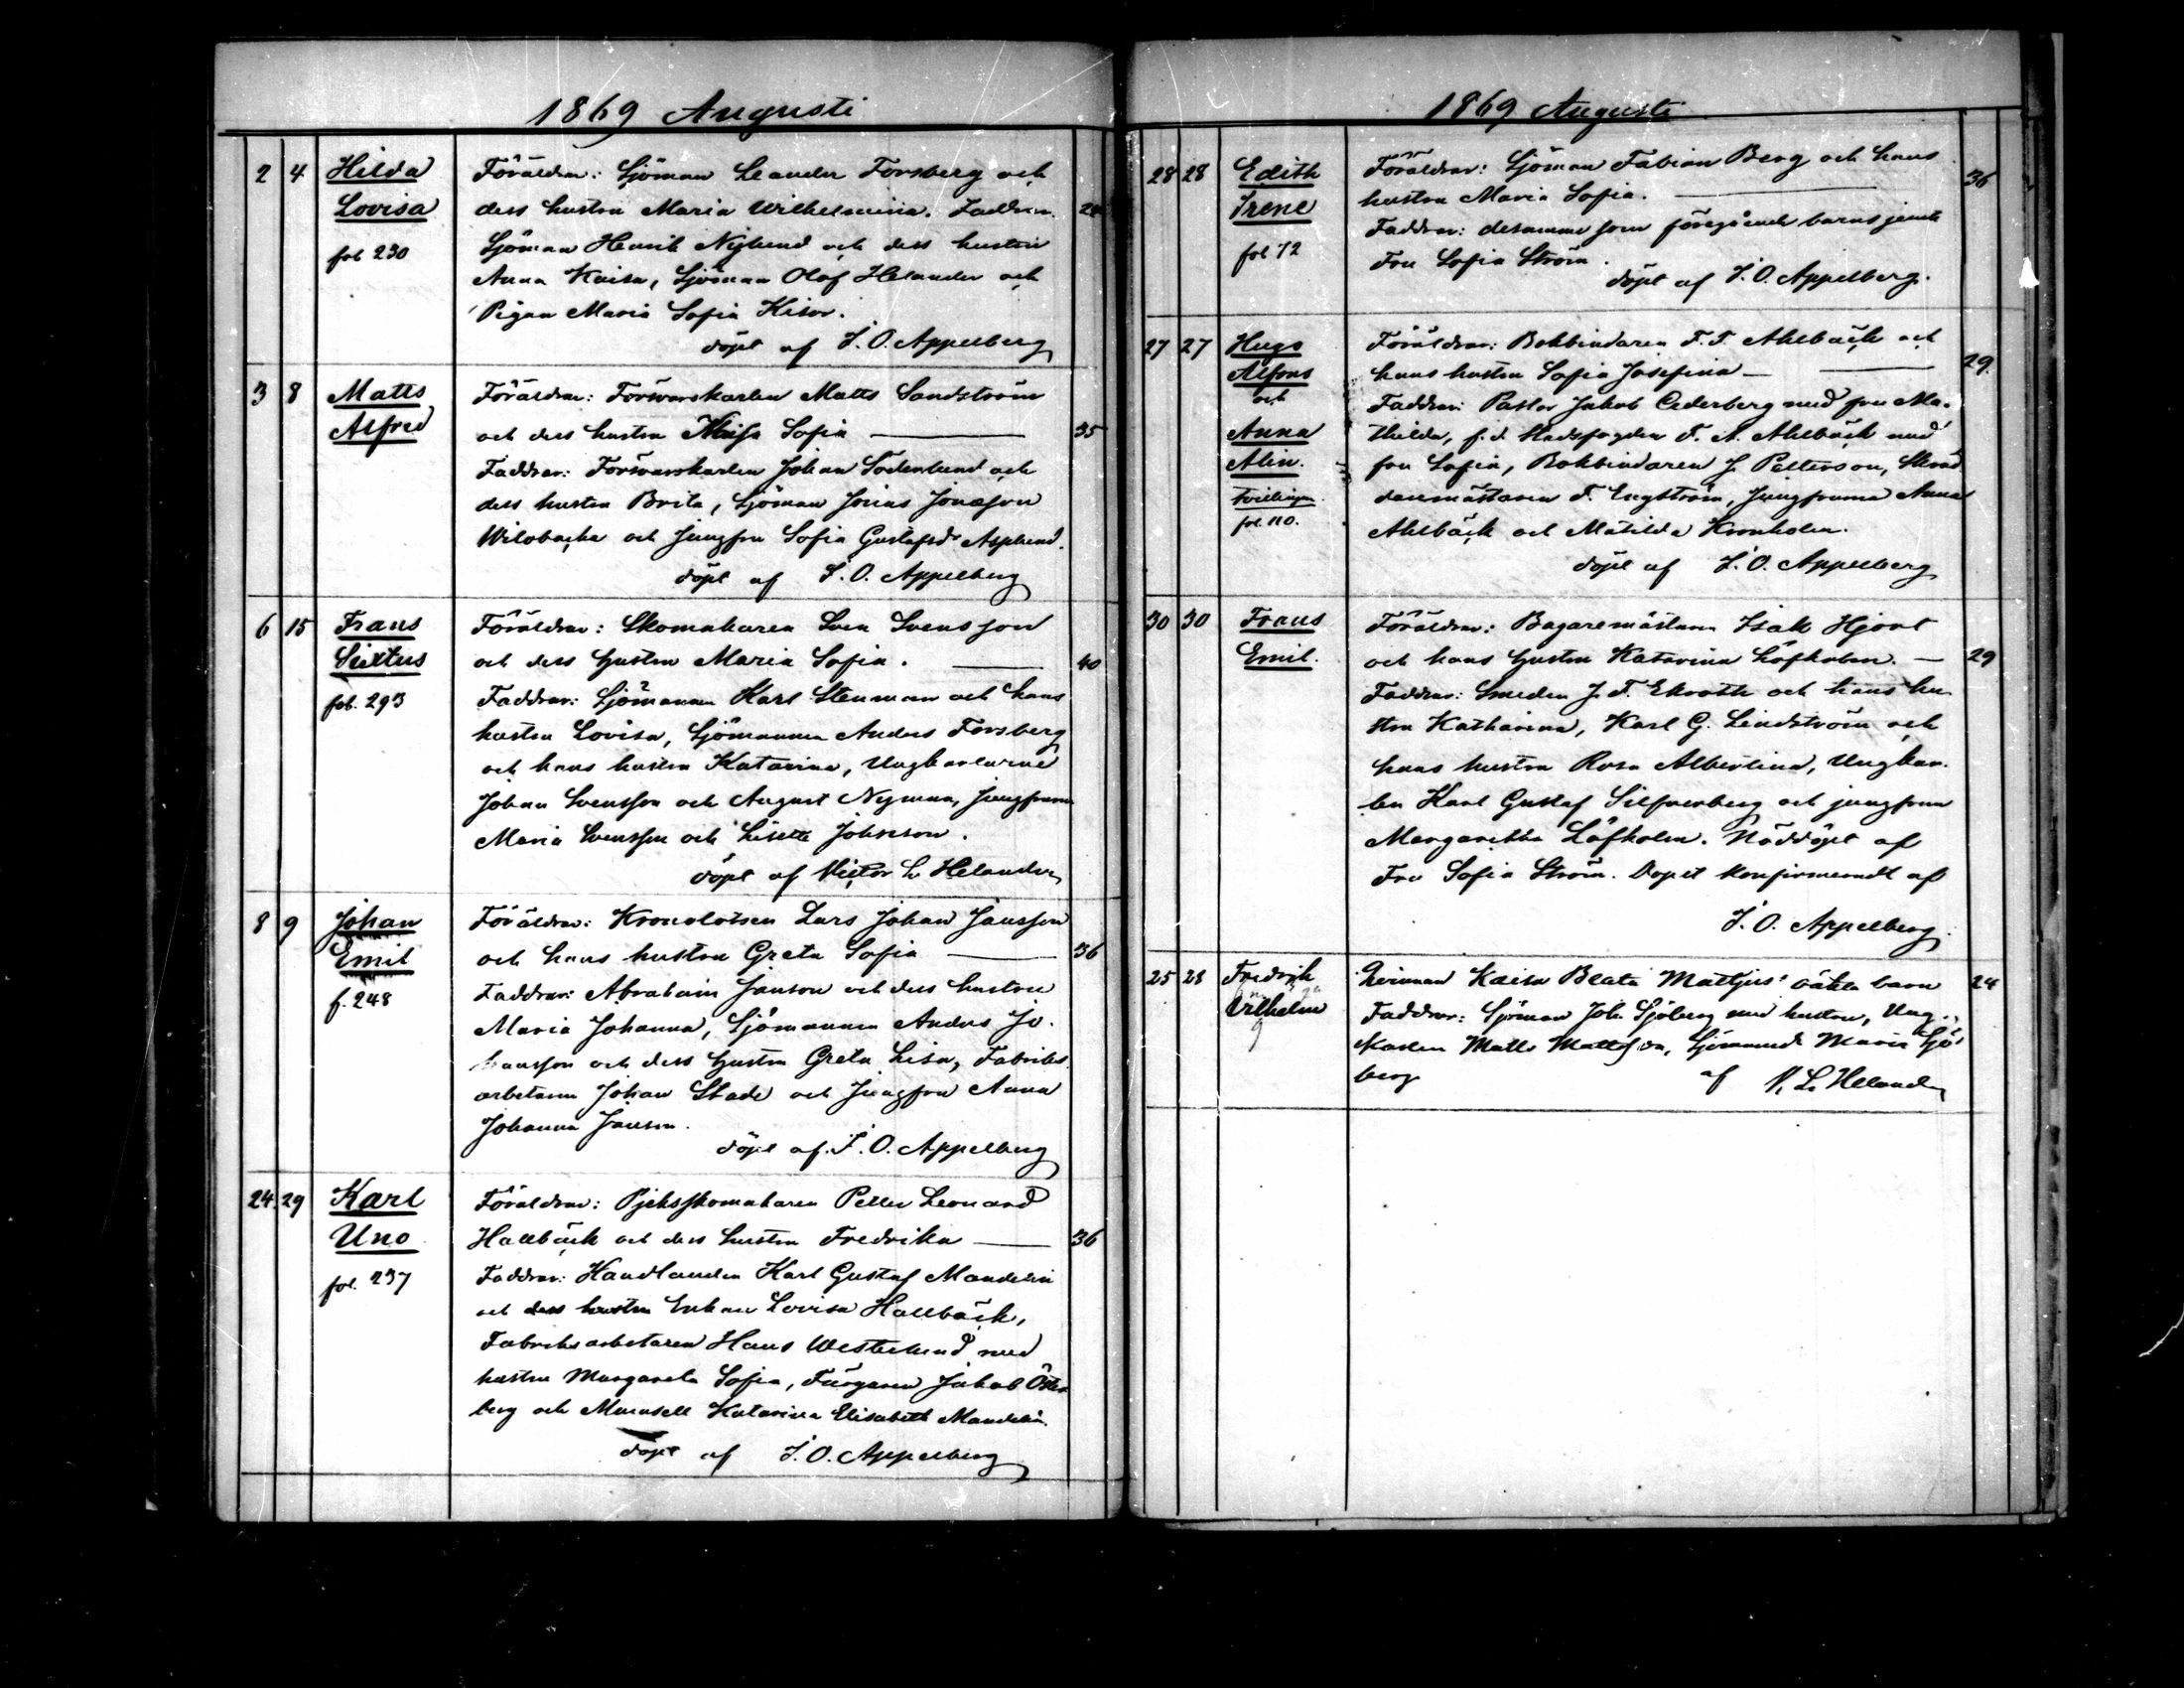 1869 Augusti
2 4 Hilda Föräldrar: Sjöman Leander Forsberg och
Lovisa dess hustru Maria Wilhelmina. Faddrar:
fol 230 Sjöman Henrik Nylund och dess hustru
Anna Kaisa, Sjöman Olof Helander och
Pigan Maria Sofia
döpt af J. O. Appelberg
3 8 Matts Föräldrar: Försvarskarlen Matts Sandström
Alfred och dess hustru Kajsa Sofia — 35
Faddrar: Försvarskarlen Johan Söderlund och
dess hustru Brita, Sjöman Jonas Jonasson
och Jungfru Sofia Asplund.
döpt af J. O. Appelberg
6 15 Frans Föräldrar: Skomakaren Sven Svensson
Sixtus och dess Hustru Maria Sofia. — 40
fol. 293 Faddrar: Sjömannen Karl Stenman och hans
hustru Lovisa, Sjömannen Anders Forsberg
och hans hustru Katarina, Ungkarlarne
Johan Svensson och August Nyman, Jungfrurna
Maria Svensson och Lisette Johnson.
döpt af Victor L. Helander
8 9 Johan Föräldrar: Kronolotsen Lars Johan Jansson
Emil och hans hustru Greta Sofia — 36
f. 248 Faddrar: Abraham Janson och dess hustru
Maria Johanna, Sjömannen Anders Jo-
hansson och dess Hustru Greta Lisa, Fabriks
arbetaren Johan Stade och Jungfru Anna
Johanna Janson.
döpt af J. O. Appelberg
24 29 Karl Föräldrar: Pjeksskomakaren Petter Leonard
Uno Hallbäck och dess hustru Fredrika — 36
fol. 237 Faddrar: Handlanden Karl Gustaf Mandelin
och dess hustru Enkan Lovisa Hallbäck,
Fabriksarbetaren Hans Westerlund med
hustru Margareta Sofia, Färgaren Jakob Öster
berg och Mamsell Katarina Elisabeth Mandelin.
döpt af J. O. Appelberg
1869 Augusti
28 28 Edith Föräldrar: Sjöman Fabian Berg och hans 36
Irene hustru Maria Sofia. —
fol 72 Faddrar: desamma som föregående barns jemte
Fru Sofia Ström.
döpt af J. O. Appelberg.
27 27 Hugo Föräldrar: Bokbindaren F. F. Ahlbäck och
Alfons hans hustru Sofia Josefina — 29.
och Faddrar: Pastor Jakob Cederberg med fru Ma-
Anna thilda, f. d. Stadsfogden F. A. Ahlbäck med
Alin. fru Sofia, Bokbindaren J. Petterson, Skräd
Tvillingar. daremästaren F. Engström, Jungfrurna Anna
fol. 110. Ahlbäck och Matilda Kronholm.
döpt af J. O. Appelberg
30 30 Frans Föräldrar: Bagaremästaren Isak Hjort
Emil. och hans Hustru Katarina Löfholm. — 29
Faddrar: Smeden J. F. Ekroth och hans hu-
stru Katharina, Karl G. Lindström och
hans hustru Rosa Albertina, Ungkar-
len Karl Gustaf Silfverberg och jungfrun
Margaretha Löfholm. Nöddöpt af
Fru Sofia Ström. Dopet konfirmeradt af
J. O. Appelberg.
25 28 Fredrik Qvinnan Kaisa Beata Mattjus' oäkta barn 24
Vilhelm Faddrar: Sjöman Joh. Sjöberg med hustru, Ung-
karlen Matts Mattsson, Maria Sjö-
berg af V. L. Helander